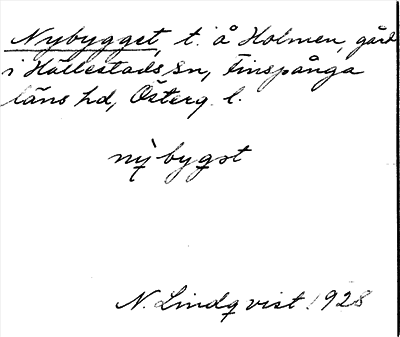 Nybygget, t. å Holmen, gård
i Hällestads sn, Finspånga
läns hd, Österg. l.
nỳbygst
N. Lindqvist 1928